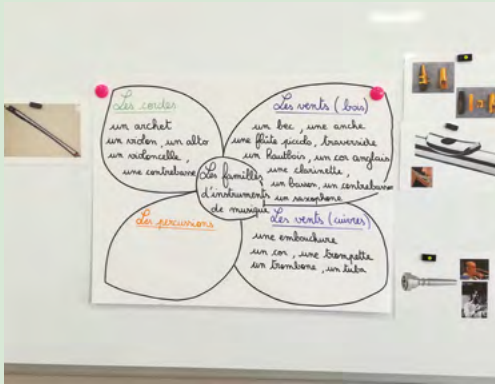 Les cordes
un archet
un violon, un alto
un violoncelle,
une contrebasse
Les vents (bois)
un bec, une anche
une flûte piccolo, traversière
un hautbois, un cor anglais
une clarinette,
un basson, un contrebasson
un saxophone
Les familles
d'instruments
de musique
Les percussions
Les vents (cuivres)
une embouchure
un cor, une trompette
un trombone, un tuba